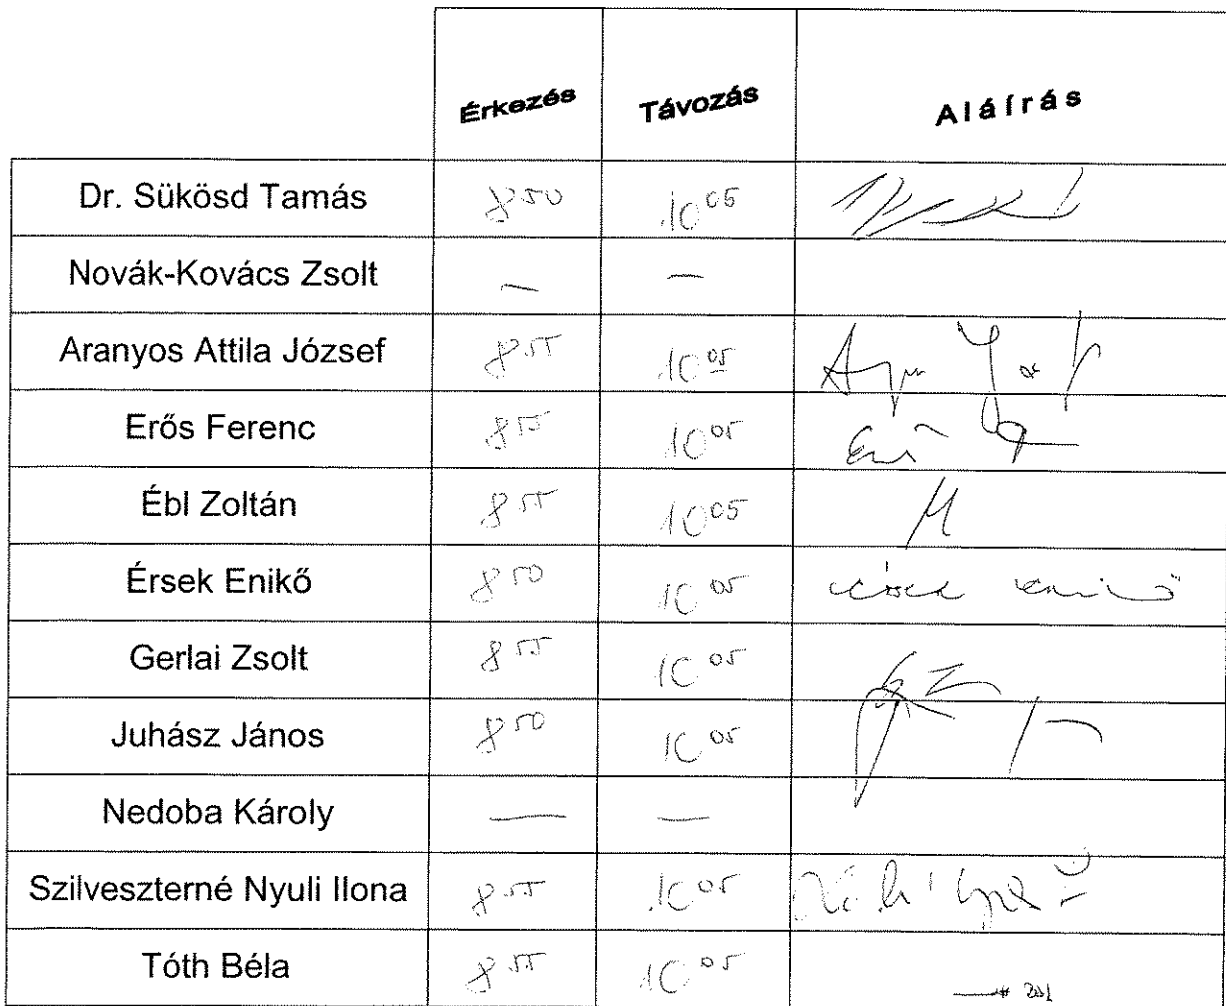 Érkezés Távozás Aláírás
Dr. Sükösd Tamás 8 50 10 05
Novák-Kovács Zsolt — —
Aranyos Attila József 8 55 10 05
Erős Ferenc 8 55 10 05
Ébl Zoltán 8 55 10 05
Érsek Enikő 8 50 10 05
Gerlai Zsolt 8 55 10 05
Juhász János 8 50 10 05
Nedoba Károly — —
Szilveszterné Nyuli Ilona 8 55 10 05
Tóth Béla 8 55 10 05